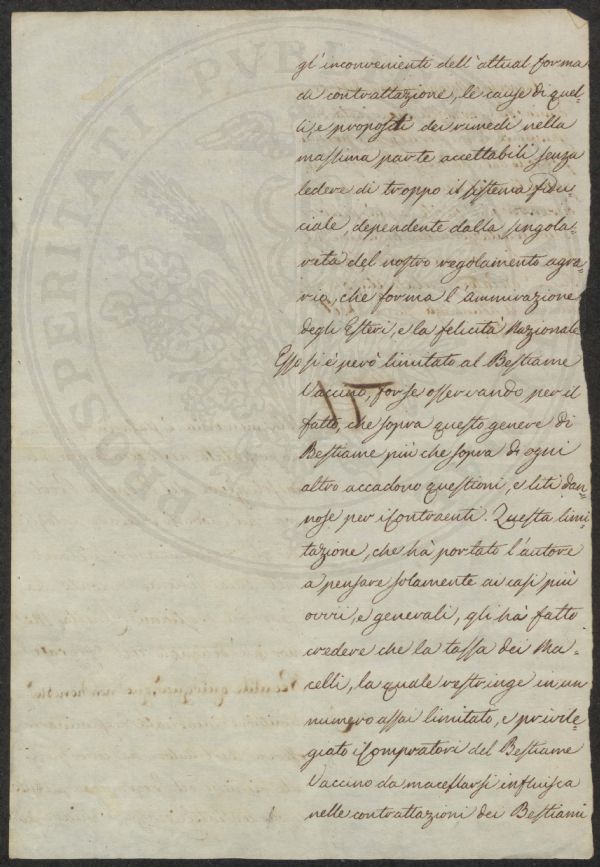 gl'inconvenienti dell'attual forma
di contrattazione, le cause di quel=
li, e proposti dei rimedi nella
massima parte accettabili senza
ledere di troppo il sistema fidu
ciale, dependente dalla singola=
rità del nostro regolamento agra=
rio, che forma l'ammirazione
degli Esteri, e la felicità Nazionale
Esso si è però limitato al Bestiame
Vaccino, forse osservando per il
fatto, che sopra questo genere di
Bestiame più che sopra di ogni
altro accadono questioni, e liti dan=
nose per i Contraenti. Questa limi
tazione, che hà portato l'autore
a pensare solamente ai casi più
ovvii, e generali, gli hà fatto
credere che la tassa dei Ma=
celli, la quale restringe in un
numero assai limitato, e privile=
giato i Compratori del Bestiame
Vaccino da macellarsi influisca
nelle contrattazioni dei Bestiami
PROSPERITATI PVBL